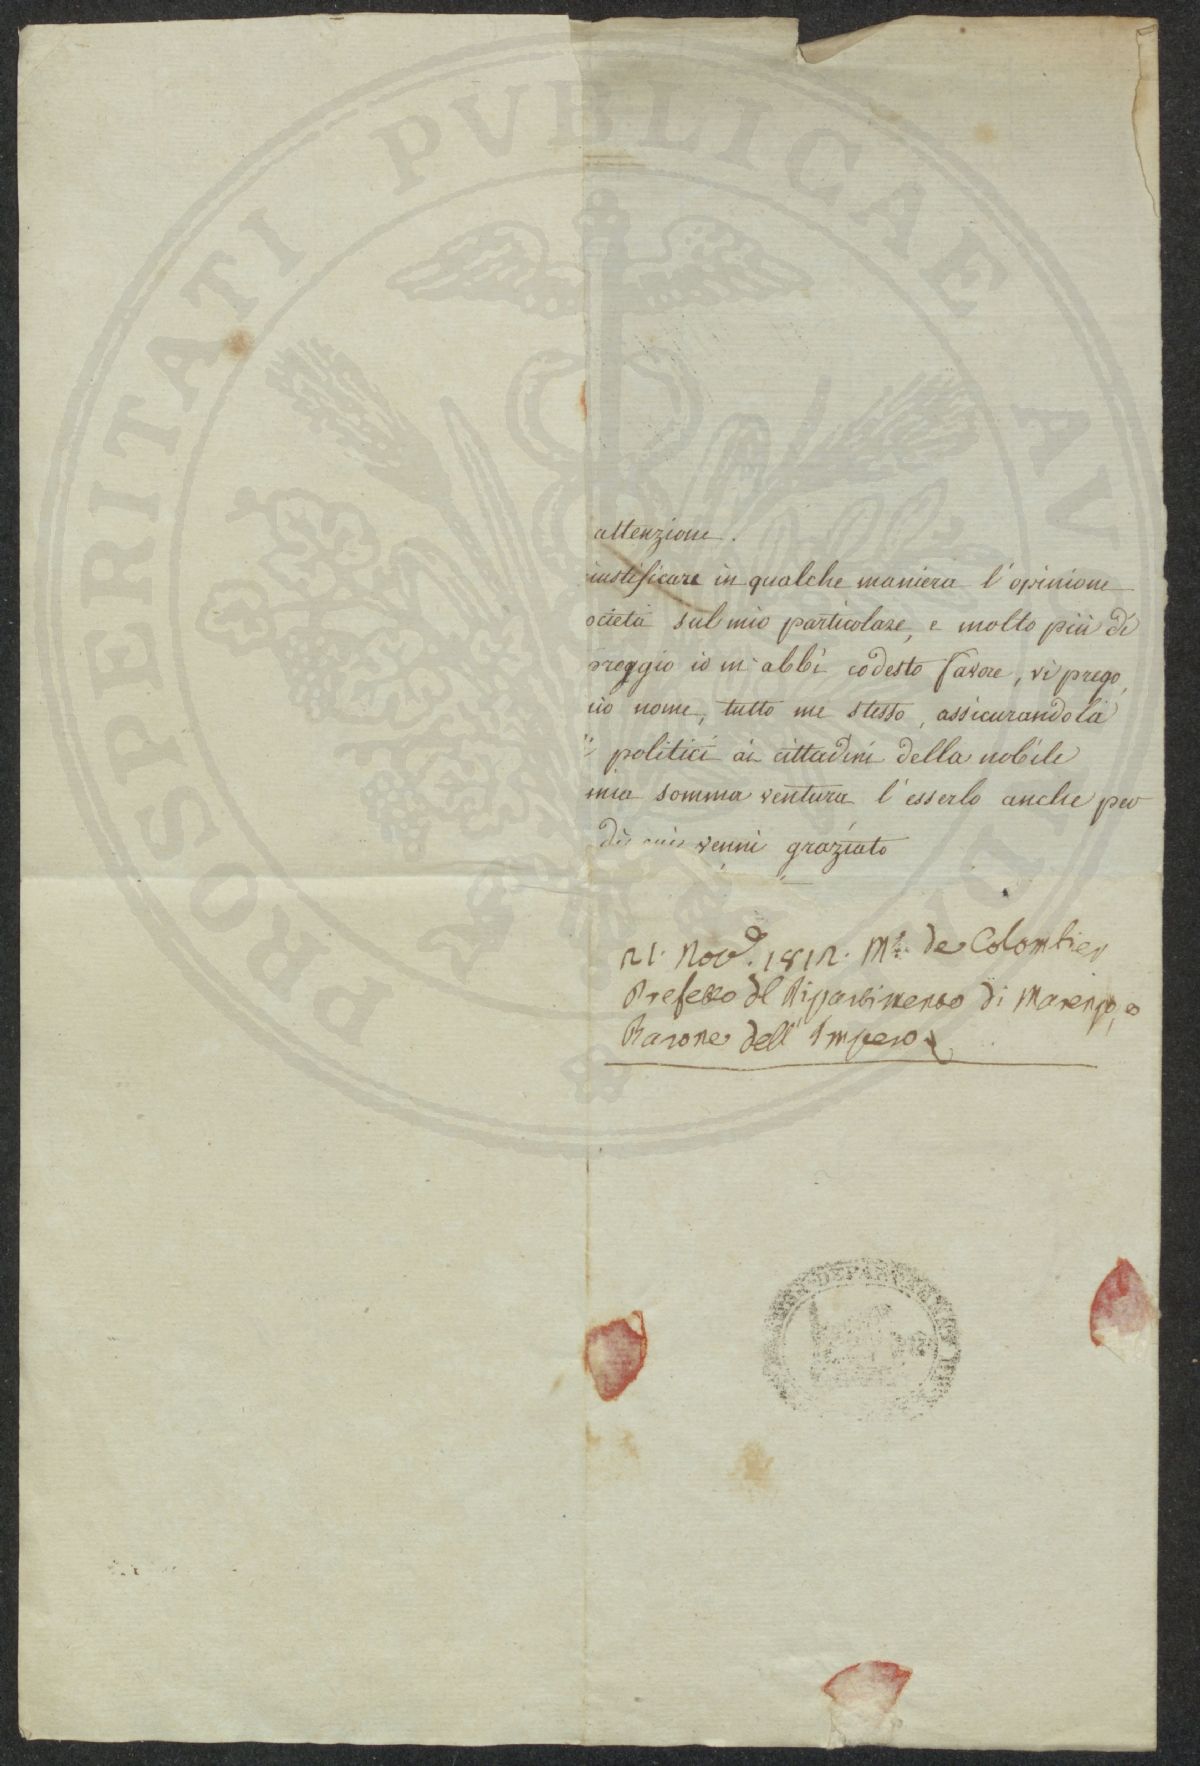 PROSPERITATI PVBLICAE AV
attenzione.
iustificare in qualche maniera l'opinione
ocietà sul mio particolare, e molto più di
preggio io m'abbi codesto favore, vi prego,
nome, tutto me stesso, assicurandola
politici ai cittadini della nobile
mia somma ventura l'esserlo anche per
di cui venni graziato
21. Nov. 1812. Mr. de Colombier
Prefetto del Dipartimento di Marengo, e
Barone dell'Impero
DEPARTEMENT